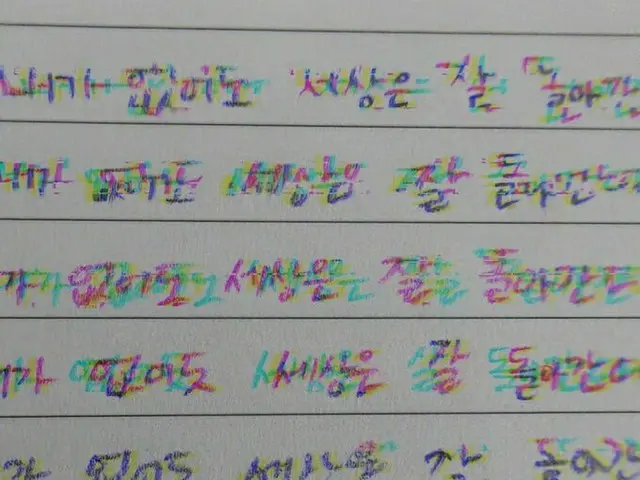 내가 없어도 세상은 잘 돌아간
내가 없어도 세상은 잘 돌아간다
가 없어도 세상은 잘 돌아간다
내가 없어도 세상은 잘 돌아간다
가 없어도 세상은 잘 돌아간